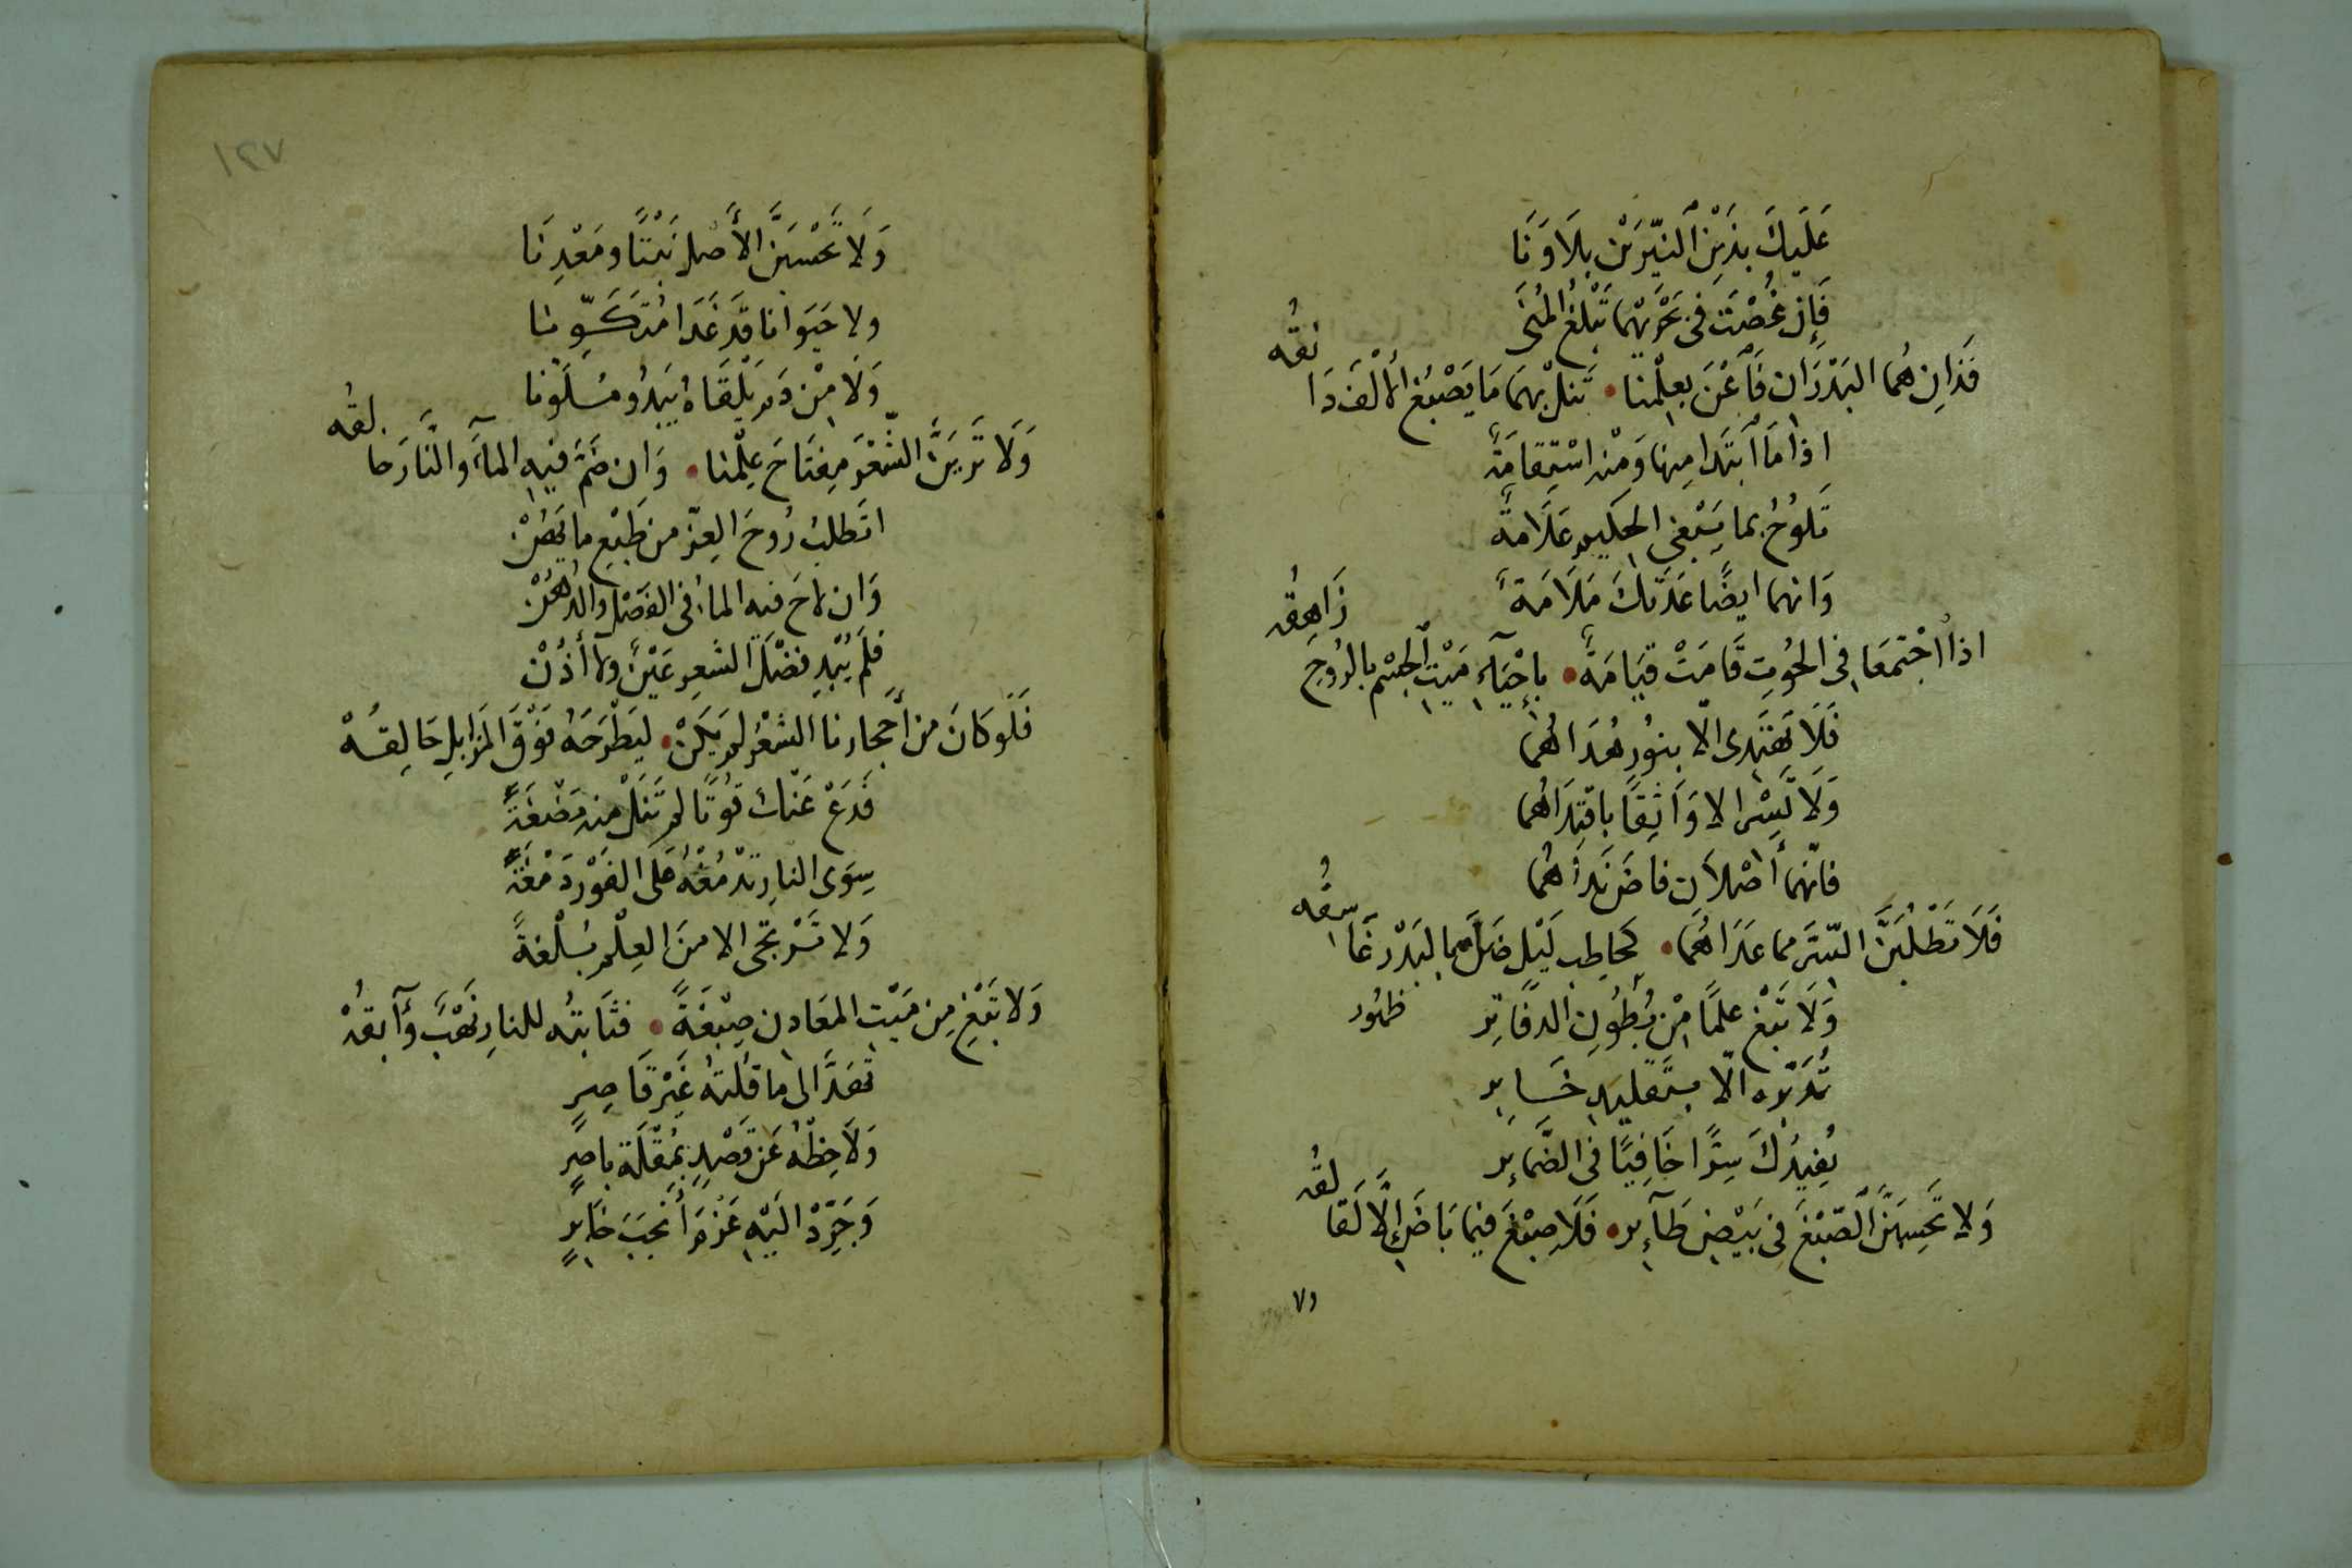 عَلَيكَ بذَيْنِ النيّرَيْن بِلَا وَنَا
فَإِن غُصْتَ فى بَحْرَيْهما تَبْلُغ المُنَى
فَذَانِ هُما البَدْرَان فَاغْنَ بعِلْمنا • تَنلْ بهما مَا يَصْبُغ الالْفَ دَانقُه
اذا مَا ابتَدا منها وَمنْه اسْتِقامَةٌ
تَلوُحُ بما يَبْغى الحكيم عَلَامةٌ
وَانهما ايضًا عَدَتكَ مَلَامَةٌ
اذا اجْتمعَا فى الحُوتِ قَامَتْ قيَامَةٌ • بإحْيَآءِ مَيْتِ الجسْم بالرُوحِ زَاهِقُه
فَلَا تَهْتَدى الّا بنوُر هُدَاهُما
وَلَا تَسْر الا وَاثِقًا باقتِدَاهُما
فانّهما أصْلَان فاضَ نَدَاهُما
فَلَا تَطْلُبَنَّ السّرَ مما عَدَاهُمَا • كحاطِب لَيْل ضَلَّ مما لبَدْر غَاسقُه
وَلَا تَبْغ علمًا مِنْ بُطُونِ الدفَاتِر ظهُور
تُدَبّره الّا بتَقليدِ خَسَابر
يُفِيدُكَ سِرًّا خَافِيًا فى الضَّمائِر
وَلا تَحْسِبَنَّ الصّبْغَ فى بَيْضِ طَآئِر • فَلَا صِبْغَ فيما بَاضَ الَّا لَقالقُه
ولا
١٢٧
وَلَا تَحْسَبَنَّ الأَصْل نَبْتًا ومَعْدِنَا
ولا حَيَوانا قَد غَدَا مُتَكَوِّنا
وَلَا مِنْ دَم يَلْقَاهُ يَبدُو مُلَوَّنا
وَلَا تَرَيَنَّ الشّعْرَ مِفتَاحَ عِلْمنا • وَان ضَمَّ فيهِ المآءَ والنَّارَ حالقُه
اتَطلبُ رُوحَ العِزّ من طَبْعِ ما يَهُنْ
وَان لاحَ فيه الماءُ فى الفَصْل والدُهُنْ
فلَم يُبْدِ فضْلَ الشعرِ عَيْنٌ ولا أذُنْ
فَلَو كَانَ من أَحجَارنا الشعْرُ لم يَكَنْ • ليَطْرَحَهُ فَوْقَ المزَابِلِ حَالِقُهْ
فَدَعْ عَنْكَ قوُتًا لم تَنَلْ منه مَضْغَةً
سِوَى النارِ تدْمُغْهُ عَلَى الفَوْر دَمْغَةً
وَلا تَرْتجى الا منَ العِلْمِ بُلْغةً
وَلا تَبْغِ مِن مَيْتِ المعَادن صِبْغَةً • فثَابتُه للنارِ نَهْبٌ وَآبقُهْ
تَعَدَّ الى ما قُلتهُ غَيْرَ قَاصِرٍ
وَلَاحِظْهُ عَن قَصْدٍ بمُقْلَة باصِرٍ
وَجَرِّدْ اليْهِ عَزْمَ أَنجَبَ خَابرٍ